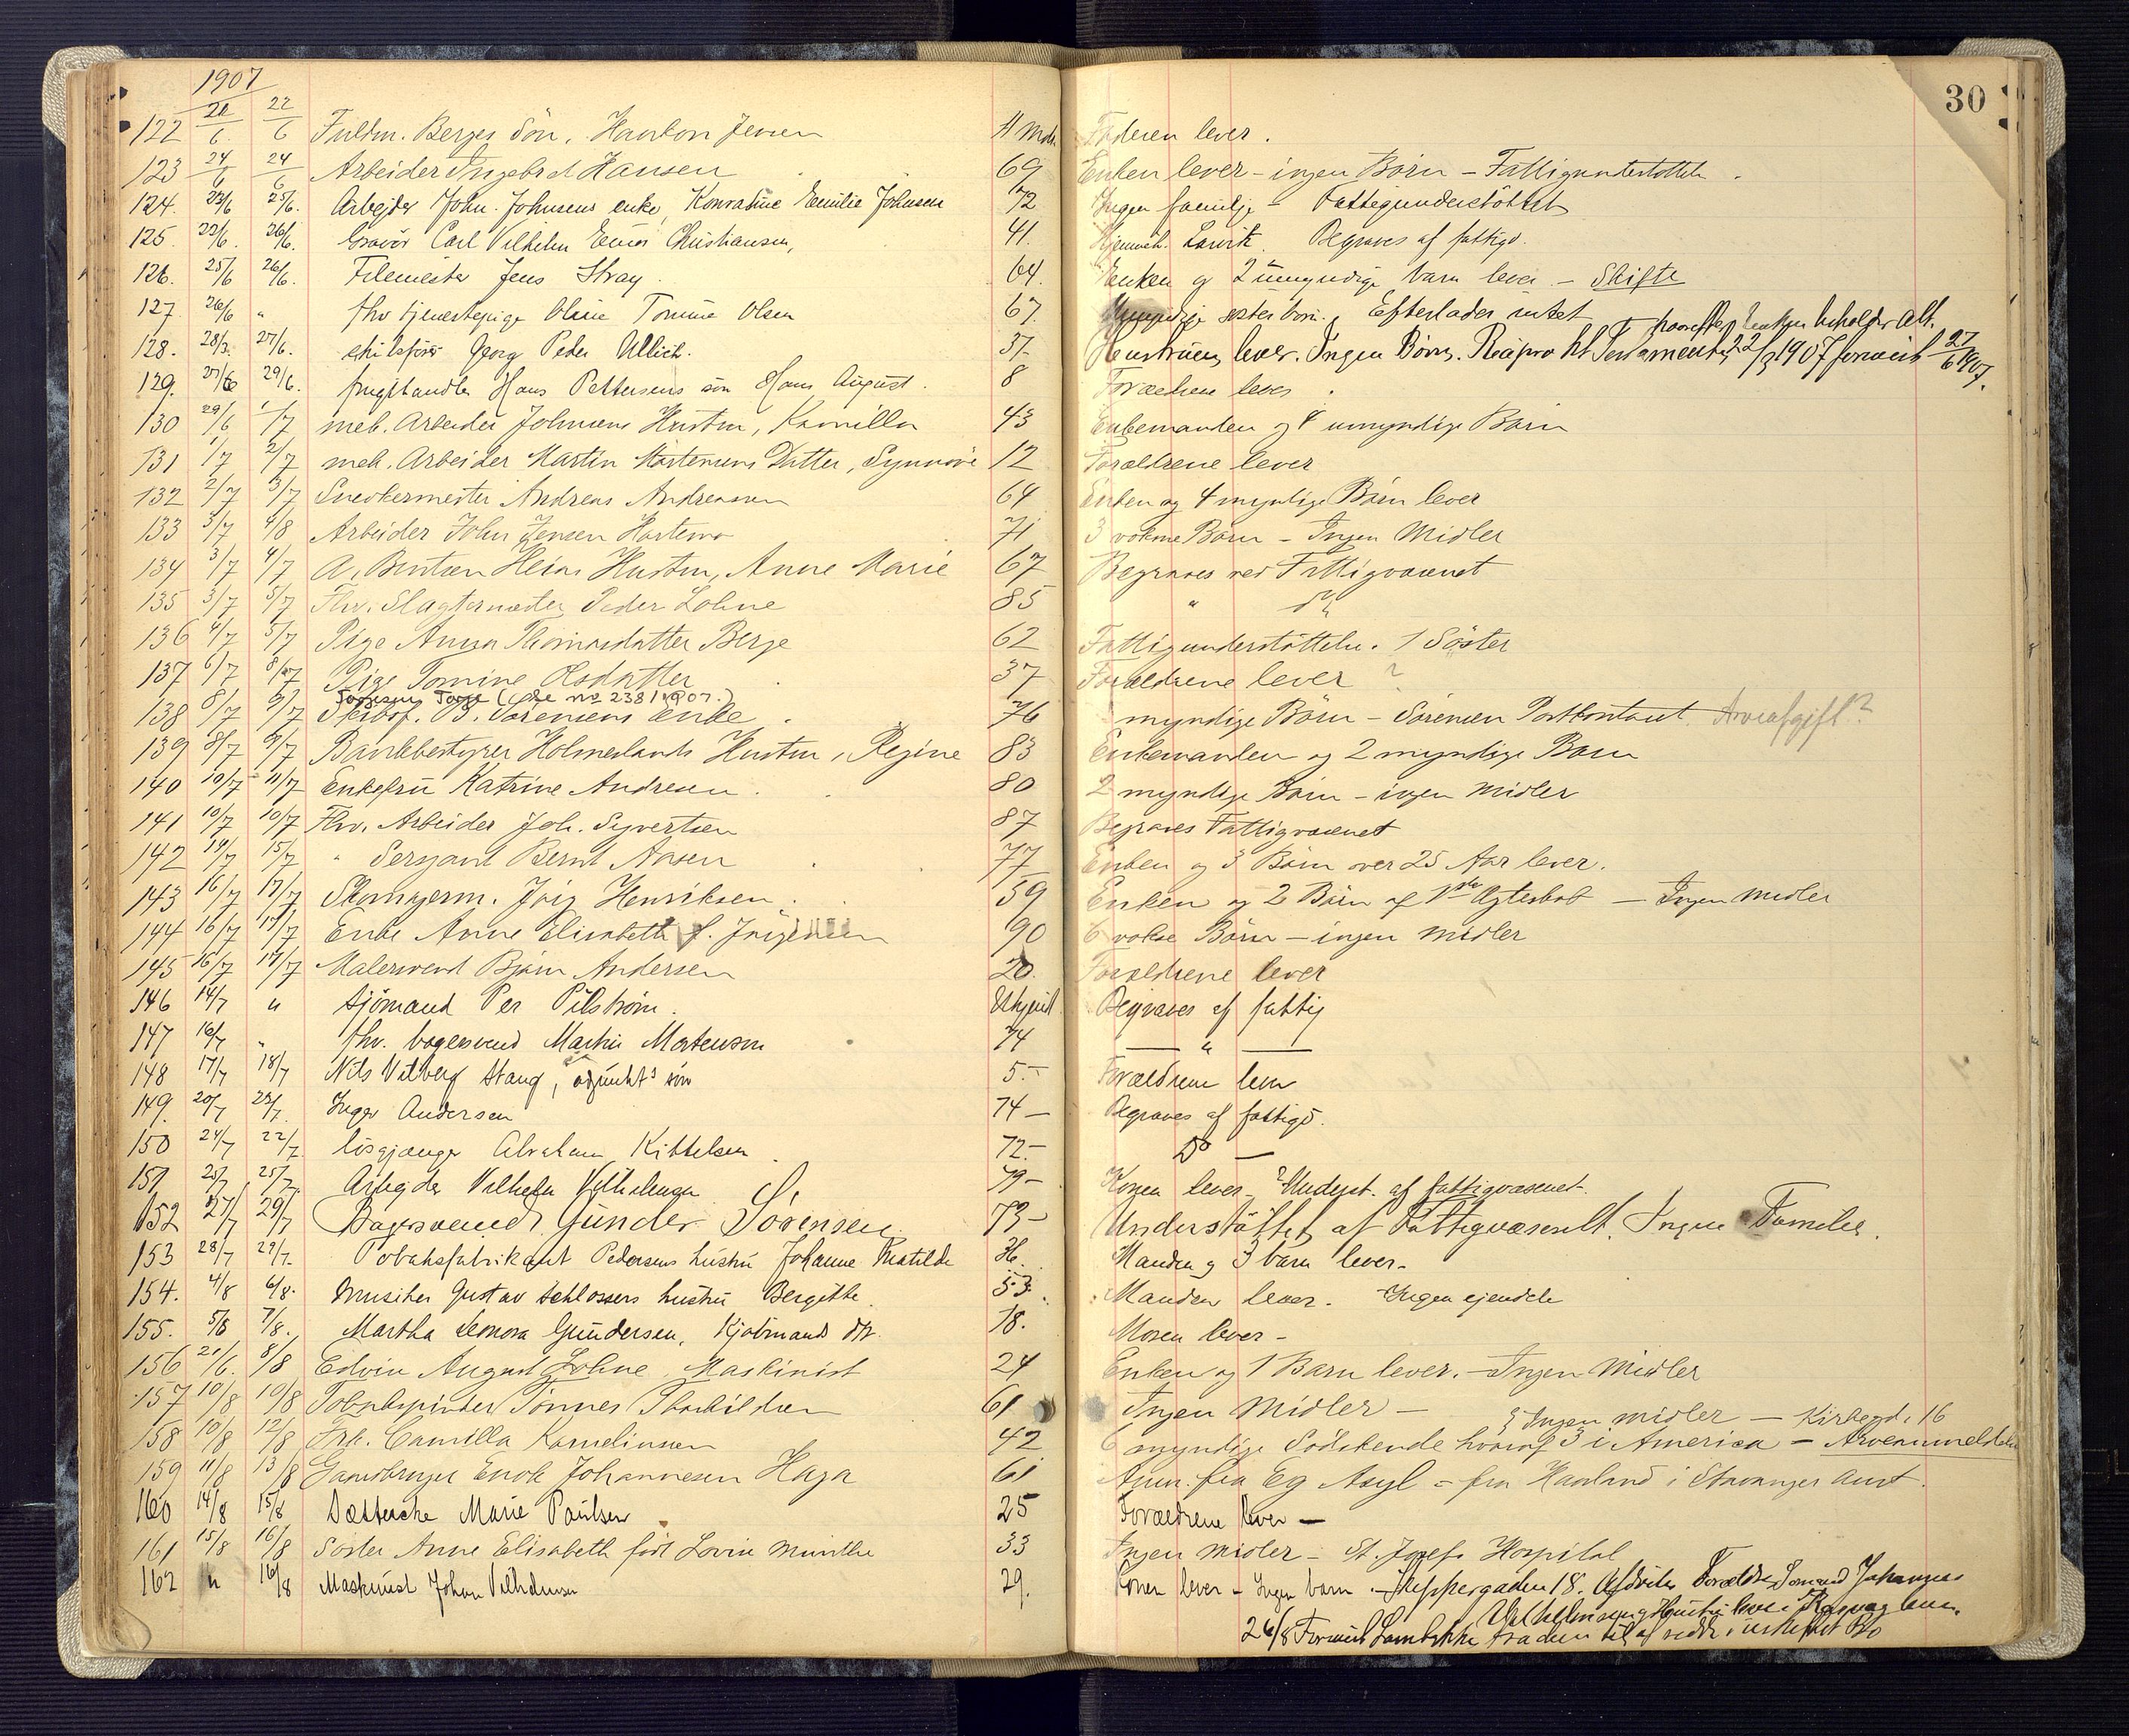 1907
30
122 20/6 22/6 Fuldm. Berges Sön, Haakon Jensen 11 Mdr. Faderen lever.
123 24/6 24/6 Arbeider Ingebret Hansen 69 Enken lever - ingen Börn - Fattigunderstöttet.
124. 22/6 25/6. Arbejder John. Johnsens enke, Konradine Emilie Johnsen 72 Ingen familje - Fattigunderstöttet
125. 22/6. 26/6. Gravör Carl Vilhelm Christiansen, 41. Hjemmeh. Larvik. Begraves af fattigv.
126. 25/6 26/6. Filemester Jens Stray. 64. Enken og 2 umyndige barn lever. - Skifte
127. 26/6 " fhv tjenestepige Oline Tomine Olsen 67. Myndige søsterbørn. Efterlader intet
hvorefter Enken beholder Alt.
128. 28/3. 27/6. skibsfører Georg Peder Ullich. 37. Hustruen lever. Ingen Børn. Reciprokt Testamente 22/3 1907 forevist 27/6 1907.
129. 27/6 29/6. frugthandler Hans Pettersens sön Hans August. 8 Forældrene lever.
130 29/6 1/7 mek. Arbeider Johnsens Hustru, Kamilla 43 Enkemanden og 4 umyndige Börn
131 1/7 2/7 mek. Arbeider Martin Mortensens Datter, Synnöve 12 Forældrene lever
132 2/7 3/7 Snedkermester Andreas Andreassen 64 Enken og 4 myndige Börn lever
133 3/7 4/8 Arbeider John Jensen 71 3 voksne Börn - Ingen Midler
134 3/7 4/7 A. Bentsen Heias Hustru, Anne Marie 67 Begraves ved Fattigvæsenet
135 3/7 5/7 Fhv. Slagtermester Peder Lohne 85 " do
136 4/7 5/7 Pige Anna Thomasdatter Berge 62 Fattigunderstöttelse. 1 Söster
137 6/7 8/7 Pige Tomine Olsdatter 37 Forældrene lever ?
Torjesen Torge (se no 238 1907.)
138 8/7 9/7 Skibsf. B. Sörensens enke. 76 myndige Börn - Sörensen Postkontoret. Arveafgift?
139 8/7 9/7 Bankbestyrer Holmeslands Hustru, Regine 83 Enkemanden og 2 myndige Barn
140 10/7 11/7 Enkefru Katrine Andresen. 80 2 myndige Börn - ingen midler
141 10/7 10/7 Fhv. Arbeider Joh. Syvertsen 87 Begraves Fattigvæsenet
142 14/7 15/7 " Sergant Bernt Aasen 77 Enken og 3 Börn over 25 Aar lever.
143 16/7 17/7 Skomagerm. Jörg Henriksen. 59 Enken og 2 Börn af 1ste Ægteskab - Ingen midler
144 16/7 17/7 Enke Anne Elisabeth f. Jörgensen 90 6 vokse Börn - ingen midler
145 16/7 17/7 Malersvend Bjarn Andersen 20. Forældrene lever
146 14/7 " Sjömand Per Pilström. Ukjend. Begraves af fattig
147 16/7 " fhv. bagersvend Martin Mortensen 74 — " —
148 17/7 18/7 Nils Vilberg Stang, adjunkts sön 5.- Forældrene lever
149. 20/7 22/7. Inger Andersen 74 — Begraves af fattigv.
150 21/7 22/7. lösgjænger Abraham Kittelsen 72.- Do —
151 25/7 25/7. Arbejder Vilhelm Vilhelmsen 79 - Konen lever - Underst. af fattigvæsenet.
152 27/7 29/7 Bagersvend Gunder Sörensen. 73 - Understöttet af Fattigvæsenet. Ingen Familie.
153 28/7 29/7. Tobaksfabrikant Pedersens hustru Johanne Matilde 36. Manden og 3 barn lever.
154. 4/8 6/8. Musiker Gustav Schlossers hustru Bergitte. 53. Manden lever. Ingen ejendele
155. 5/8 7/8. Martha Leonora Gundersen, Kjøbmands dtr. 18. Moren lever -
156 21/6. 8/8 Edvin August Lohne, Maskinist 24 Enken og 1 Barn lever. - Ingen Midler
157 10/8 10/8 Tobakspinder Tönnes Thorkildsen 61 Ingen Midler -
Ingen midler - Kirkegd. 16
158 10/8 12/8 Frk. Camilla Kornelinssen 42 6 myndige Södskende hvoraf 3 i America - Arveanmeldelse
159 11/8 13/8 Gaardbruger Enok Johannesen Haga 61 Anm. fra Eg Asyl - fra Havland i Stavanger Amt.
160 14/8 15/8 Marie Paulsen 25 Forældrene lever —
161 15/8 16/8 Söster Anne Elisabeth född Lovise Münthe 33 Ingen midler - St. Josefs Hospital
162 " 16/8 Maskinist Johan Vilhelmsen 29. Konen lever - Ingen barn. - Skippergaden 18. Afdødes Forældre Sömand Johannes
Vilhelmsen og Hustru lever i Rosvag leve.
26/8 Forevist Samtykke fraden til at sidde i uskiftet Bo